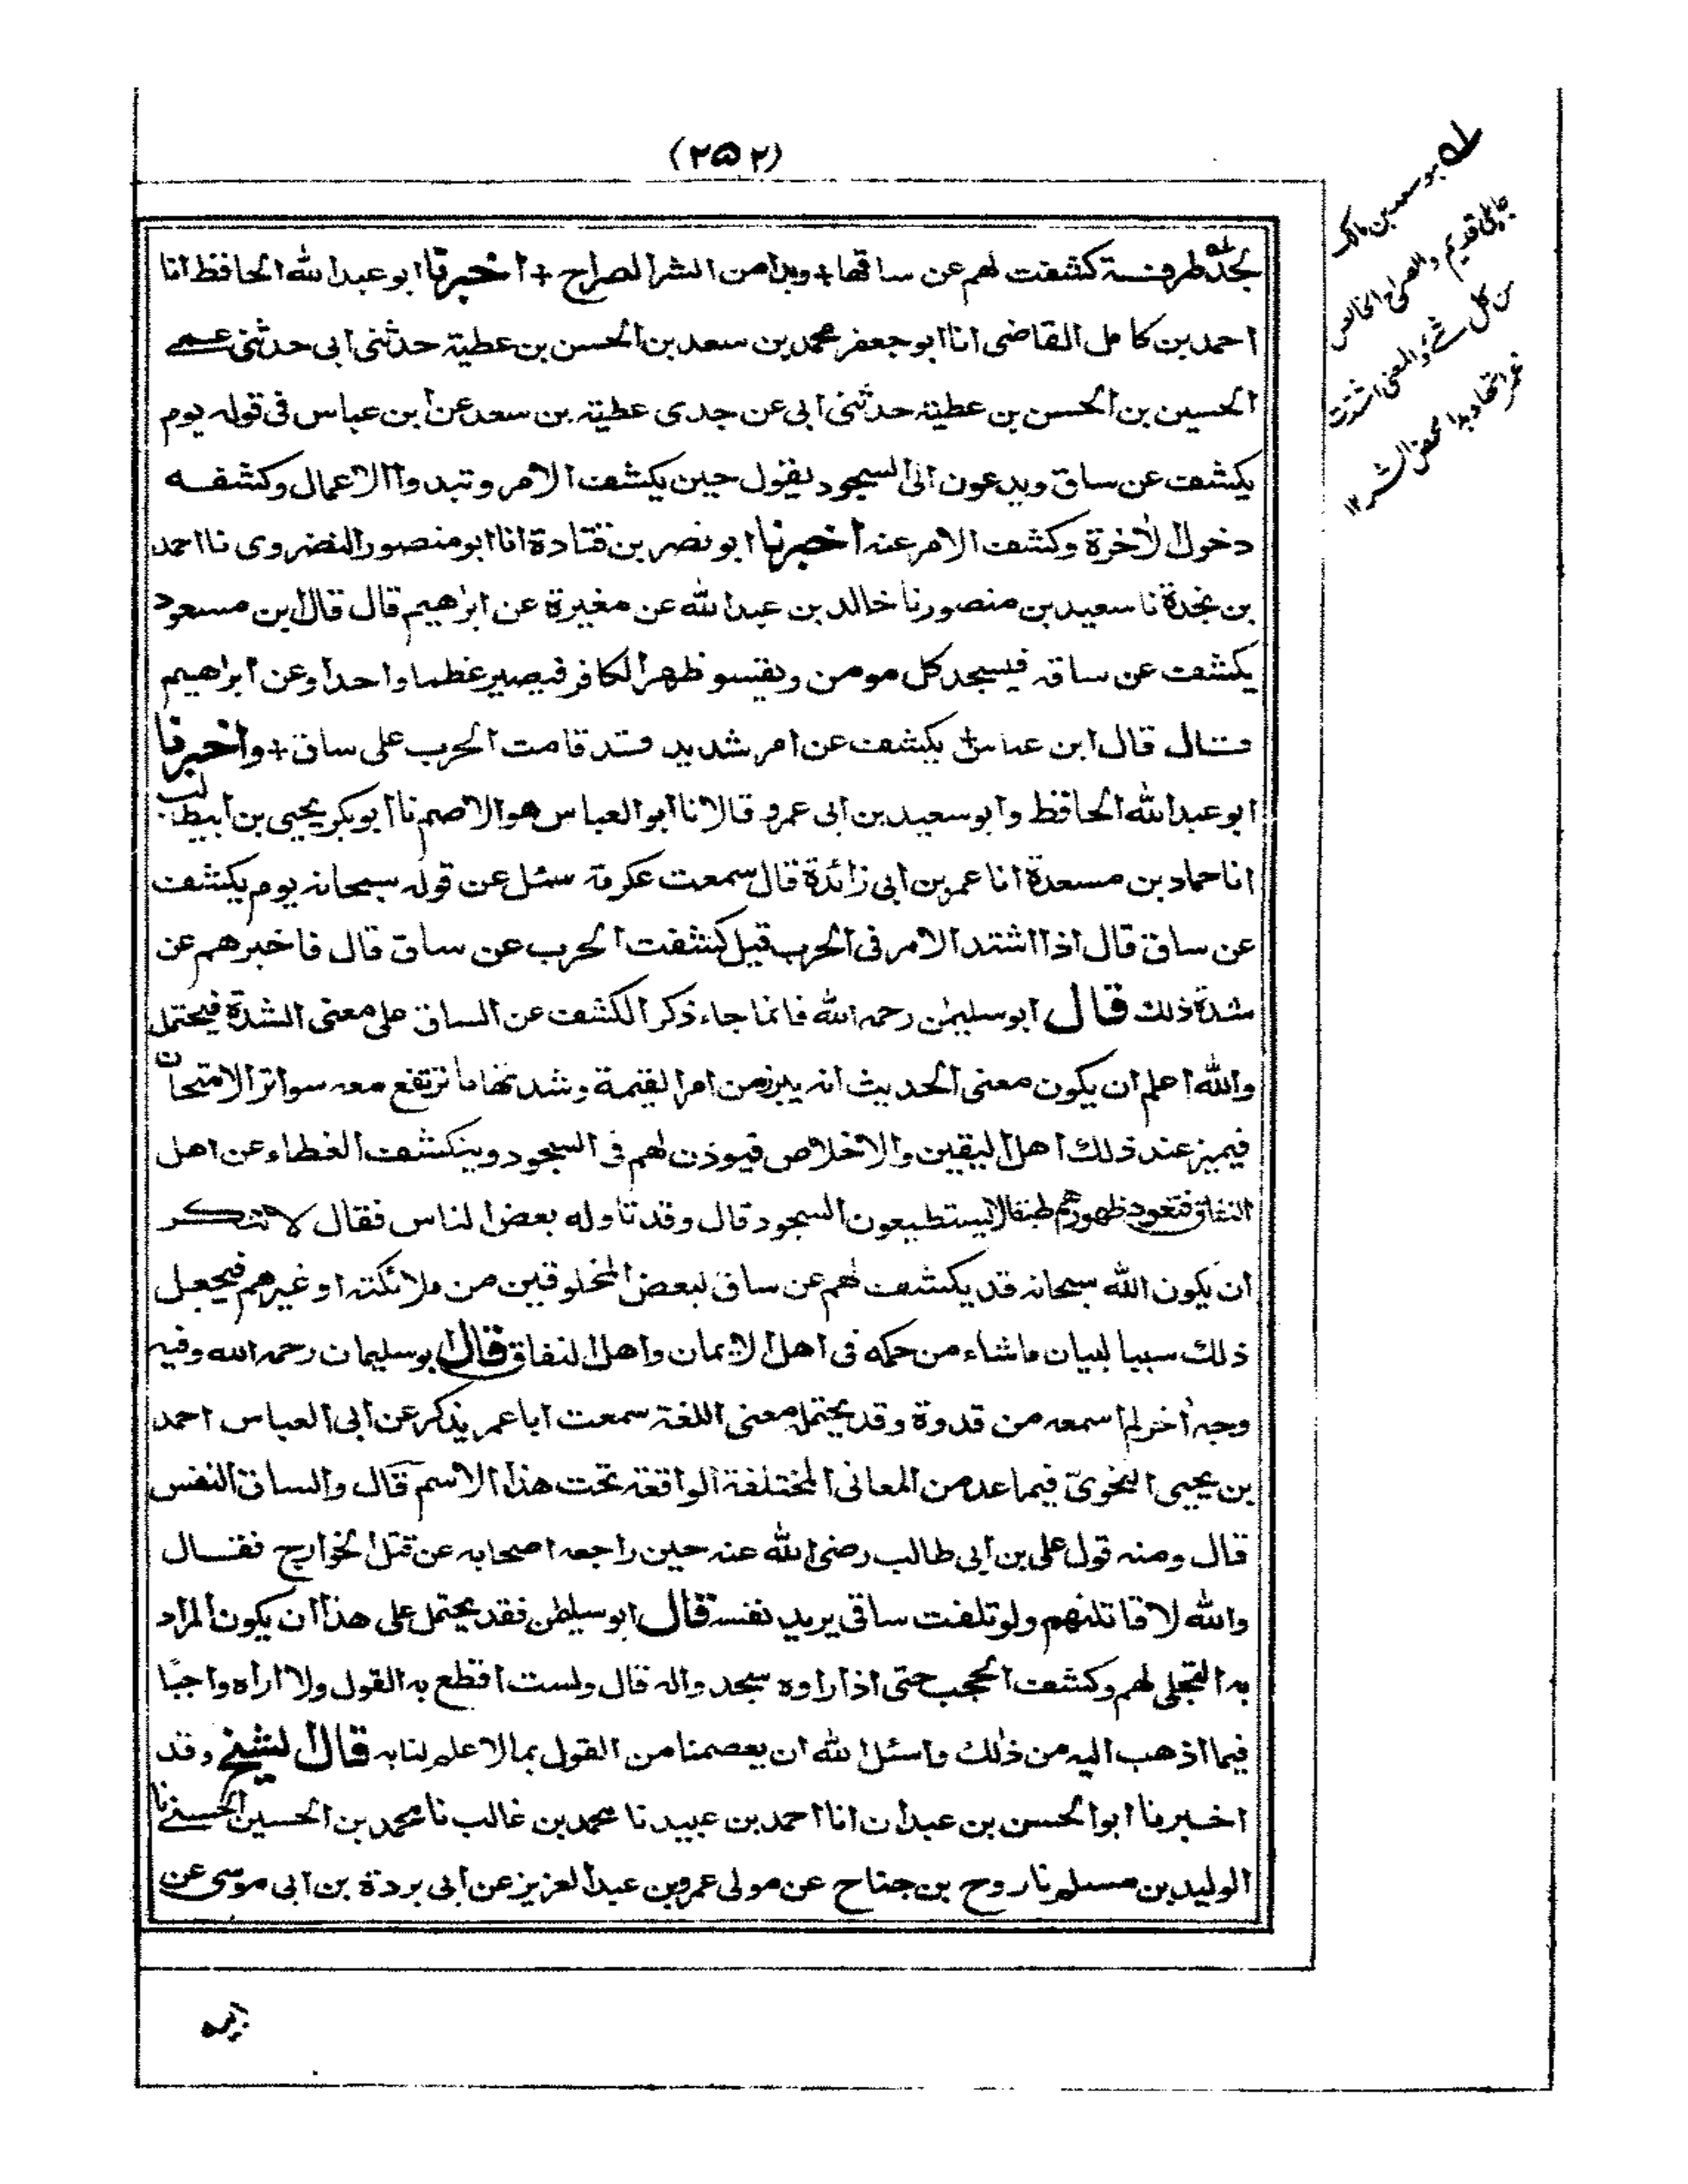 (٢٥٢)
لجد طرفة كشفت لهم عن ساقها + وبدا من الشر الصراح + اخبرنا ابو عبد الله الحافظ انا
احمد بن كامل القاضى انا ابو جعفر محمد بن سعد بن الحسن بن عطية حدثنى ابى حدثنى عمى
الحسين بن الحسن بن عطية حدثنى ابى عن جدى عطية بن سعد عن ابن عباس فى قوله يوم
يكشف عن ساق ويدعون الى السجود يقول حين يكشف الامر وتبدوا الاعمال وكشفه
دخول الاخرة وكشف الامر عنه اخبرنا ابو نصر بن قتادة انا ابو منصور النضروى نا احمد
بن نجدة نا سعيد بن منصور نا خالد بن عبد الله عن مغيرة عن ابرهيم قال قال ابن مسعود
يكشف عن ساقه فيسجد كل مومن ويقسو ظهر الكافر فيصير عظما واحدا وعن ابراهيم
قال قال ابن عباس يكشف عن امر شديد قد قامت الحرب على ساق + واخبرنا
ابو عبد الله الحافظ وابو سعيد بن ابى عمرو قالا نا ابو العباس هو الاصم نا ابو بكر يحيى بن ابيطالب
انا حماد بن مسعدة انا عمر بن ابى زائدة قال سمعت عكرمة سئل عن قوله سبحانه يوم يكشف
عن ساق قال اذا اشتد الامر فى الحرب قيل كشفت الحرب عن ساق قال فاخبرهم عن
شدة ذلك قال ابو سليمن رحمه الله فانما جاء ذكر الكشف عن الساق على معنى الشدة فيحتمل
والله اعلم ان يكون معنى الحديث انه يبرز من امر القيمة وشدتها ما ترتفع معه سواتر الامتحان
فيميز عند ذلك اهل اليقين والاخلاص فيوذن لهم فى السجود وينكشف الغطاء عن اهل
النفاق فتعود ظهورهم طبقا لا يستطيعون السجود قال وقد تاوله بعض الناس فقال لا تنكر
ان يكون الله سبحانه قد يكشف لهم عن ساق لبعض المخلوقين من ملائكته او غيرهم فيجعل
ذلك سببا لبيان ما شاء من حكمه فى اهل الايمان واهل النفاق قال ابو سليمان رحمه الله وفيه
وجه اخر لم اسمعه من قدوة وقد يحتمله معنى اللغة سمعت ابا عمر يذكر عن ابى العباس احمد
بن يحيى النحوى فيما عد من المعانى المختلفة الواقعة تحت هذا الاسم قال والساق النفس
قال ومنه قول على بن ابى طالب رضى الله عنه حين راجعه اصحابه عن قتل الخوارج فقال
والله لاقاتلنهم ولو تلفت ساقى يريد نفسه قال ابو سليمن فقد يحتمل على هذا ان يكون المراد
به التجلى لهم وكشف الحجب حتى اذا راوه سجدوا له قال ولست اقطع به القول ولا اراه واجبا
فيما اذهب اليه من ذلك واسئل الله ان يعصمنا من القول بما لا علم لنا به قال الشيخ وقد
اخبرنا ابو الحسن بن عبدان انا احمد بن عبيد نا محمد بن غالب نا محمد بن الحسين نا
الوليد بن مسلم نا روح بن جناح عن مولى عمر بن عبد العزيز عن ابى بردة بن ابى موسى عن
له هو سعد بن مالك
جاهلى قديم والصراح الخالص
من كل شئ والمعنى اشتدت